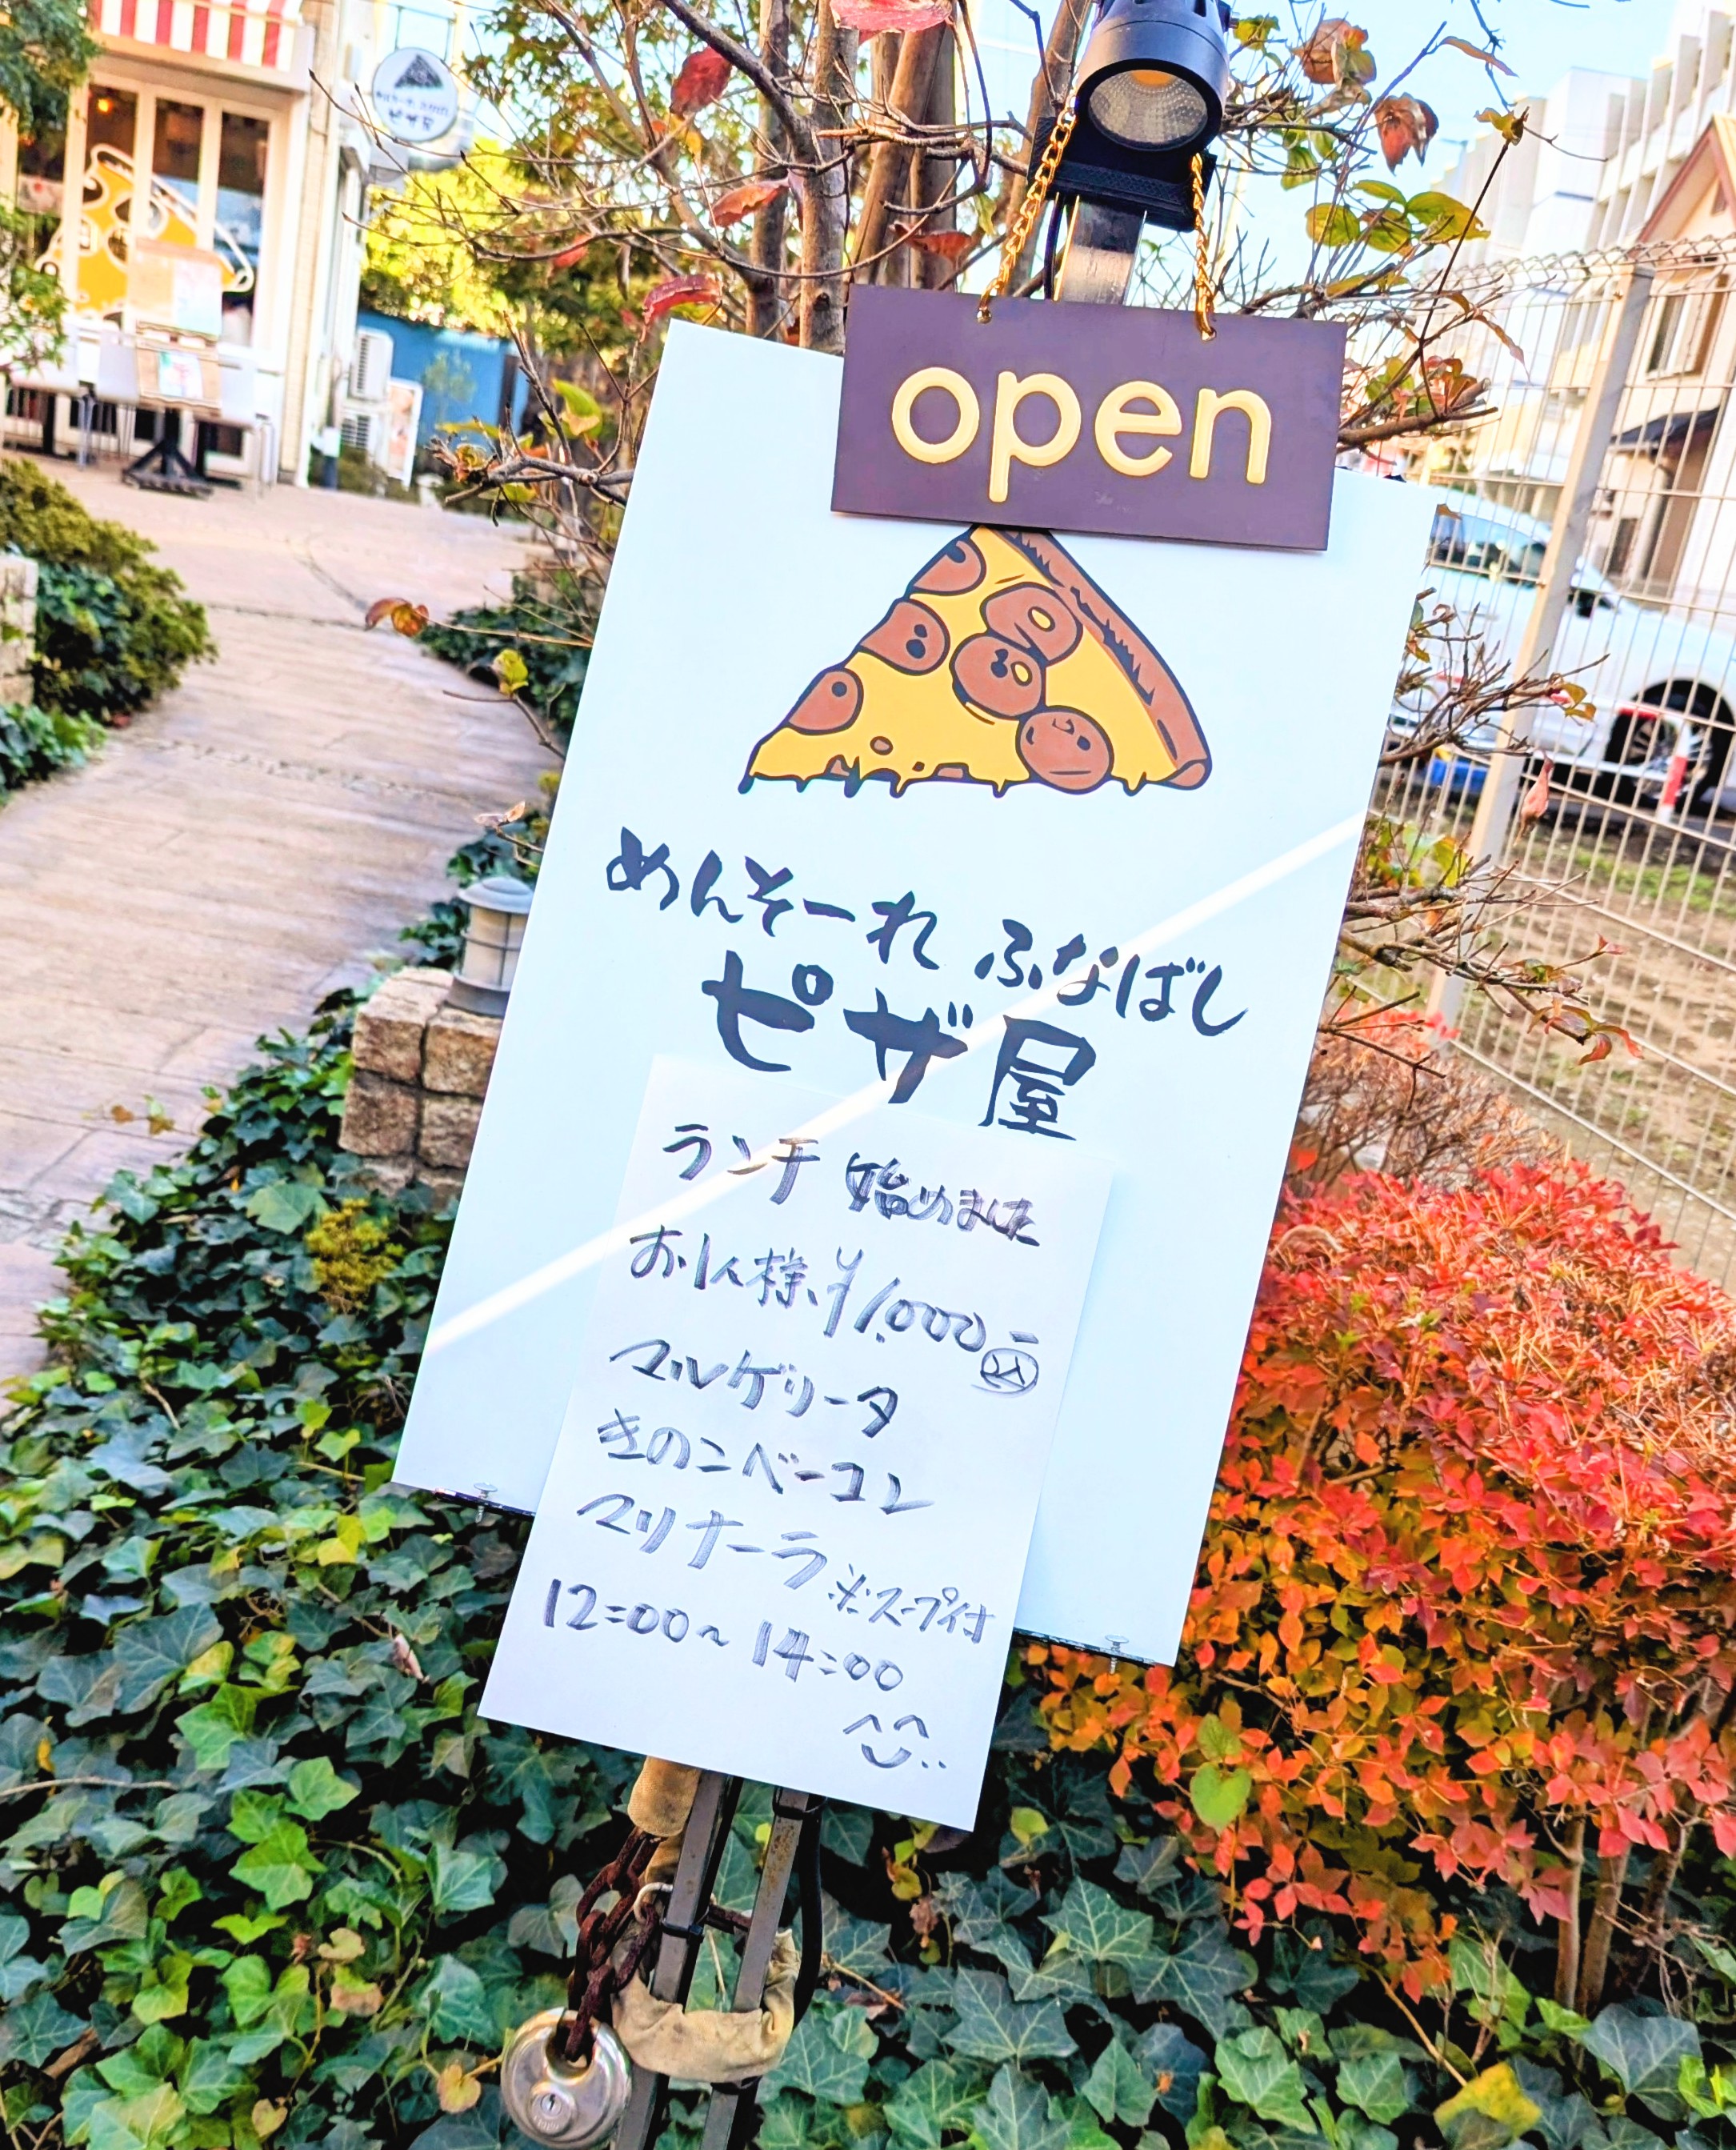 open
めんそーれ ふなばし
ピザ屋
ランチ 始めました
お1人様 ¥1,000
マルゲリータ
きのこベーコン
マリナーラ ※スープ付
12:00~14:00
ピザ屋